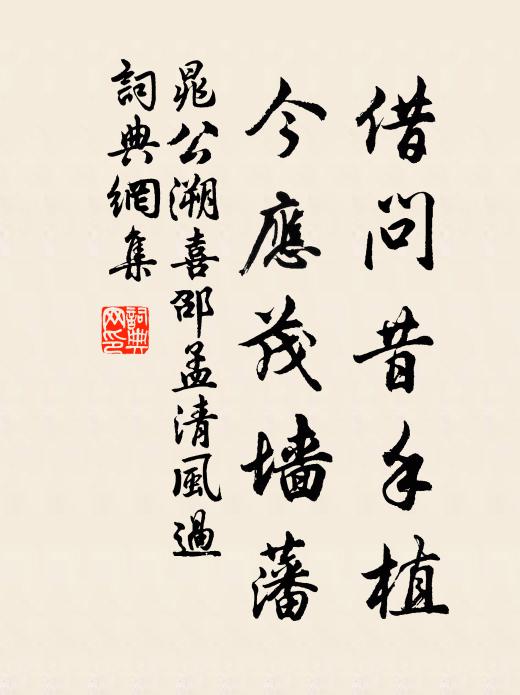 借问昔手植
今應茂墙藩
晁公溯喜邵孟清風過
詞典網集
詞典网印